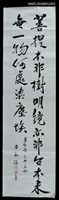 菩提本非樹明鏡亦非台本來
無一物何處染塵埃